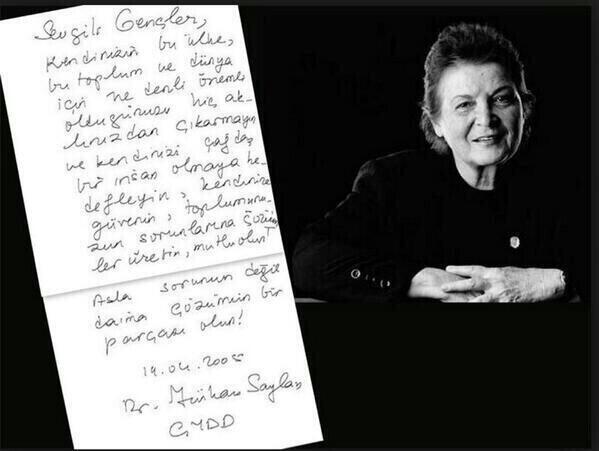 Sevgili Gençler,
Kendinizin bu ülke,
bu toplum ve dünya
için ne denli önemli
olduğunuzu hiç ak-
lınızdan çıkarmayın
ve kendinizi çağdaş
bir insan olmaya he-
defleyin, kendinize
güvenin, toplumunu-
zun sorunlarına çözüm-
ler üretin, mutlu olun!
Asla sorunun değil
daima çözümün bir
parçası olun!
19.04.2005
Dr. Türkan Saylan
ÇYDD